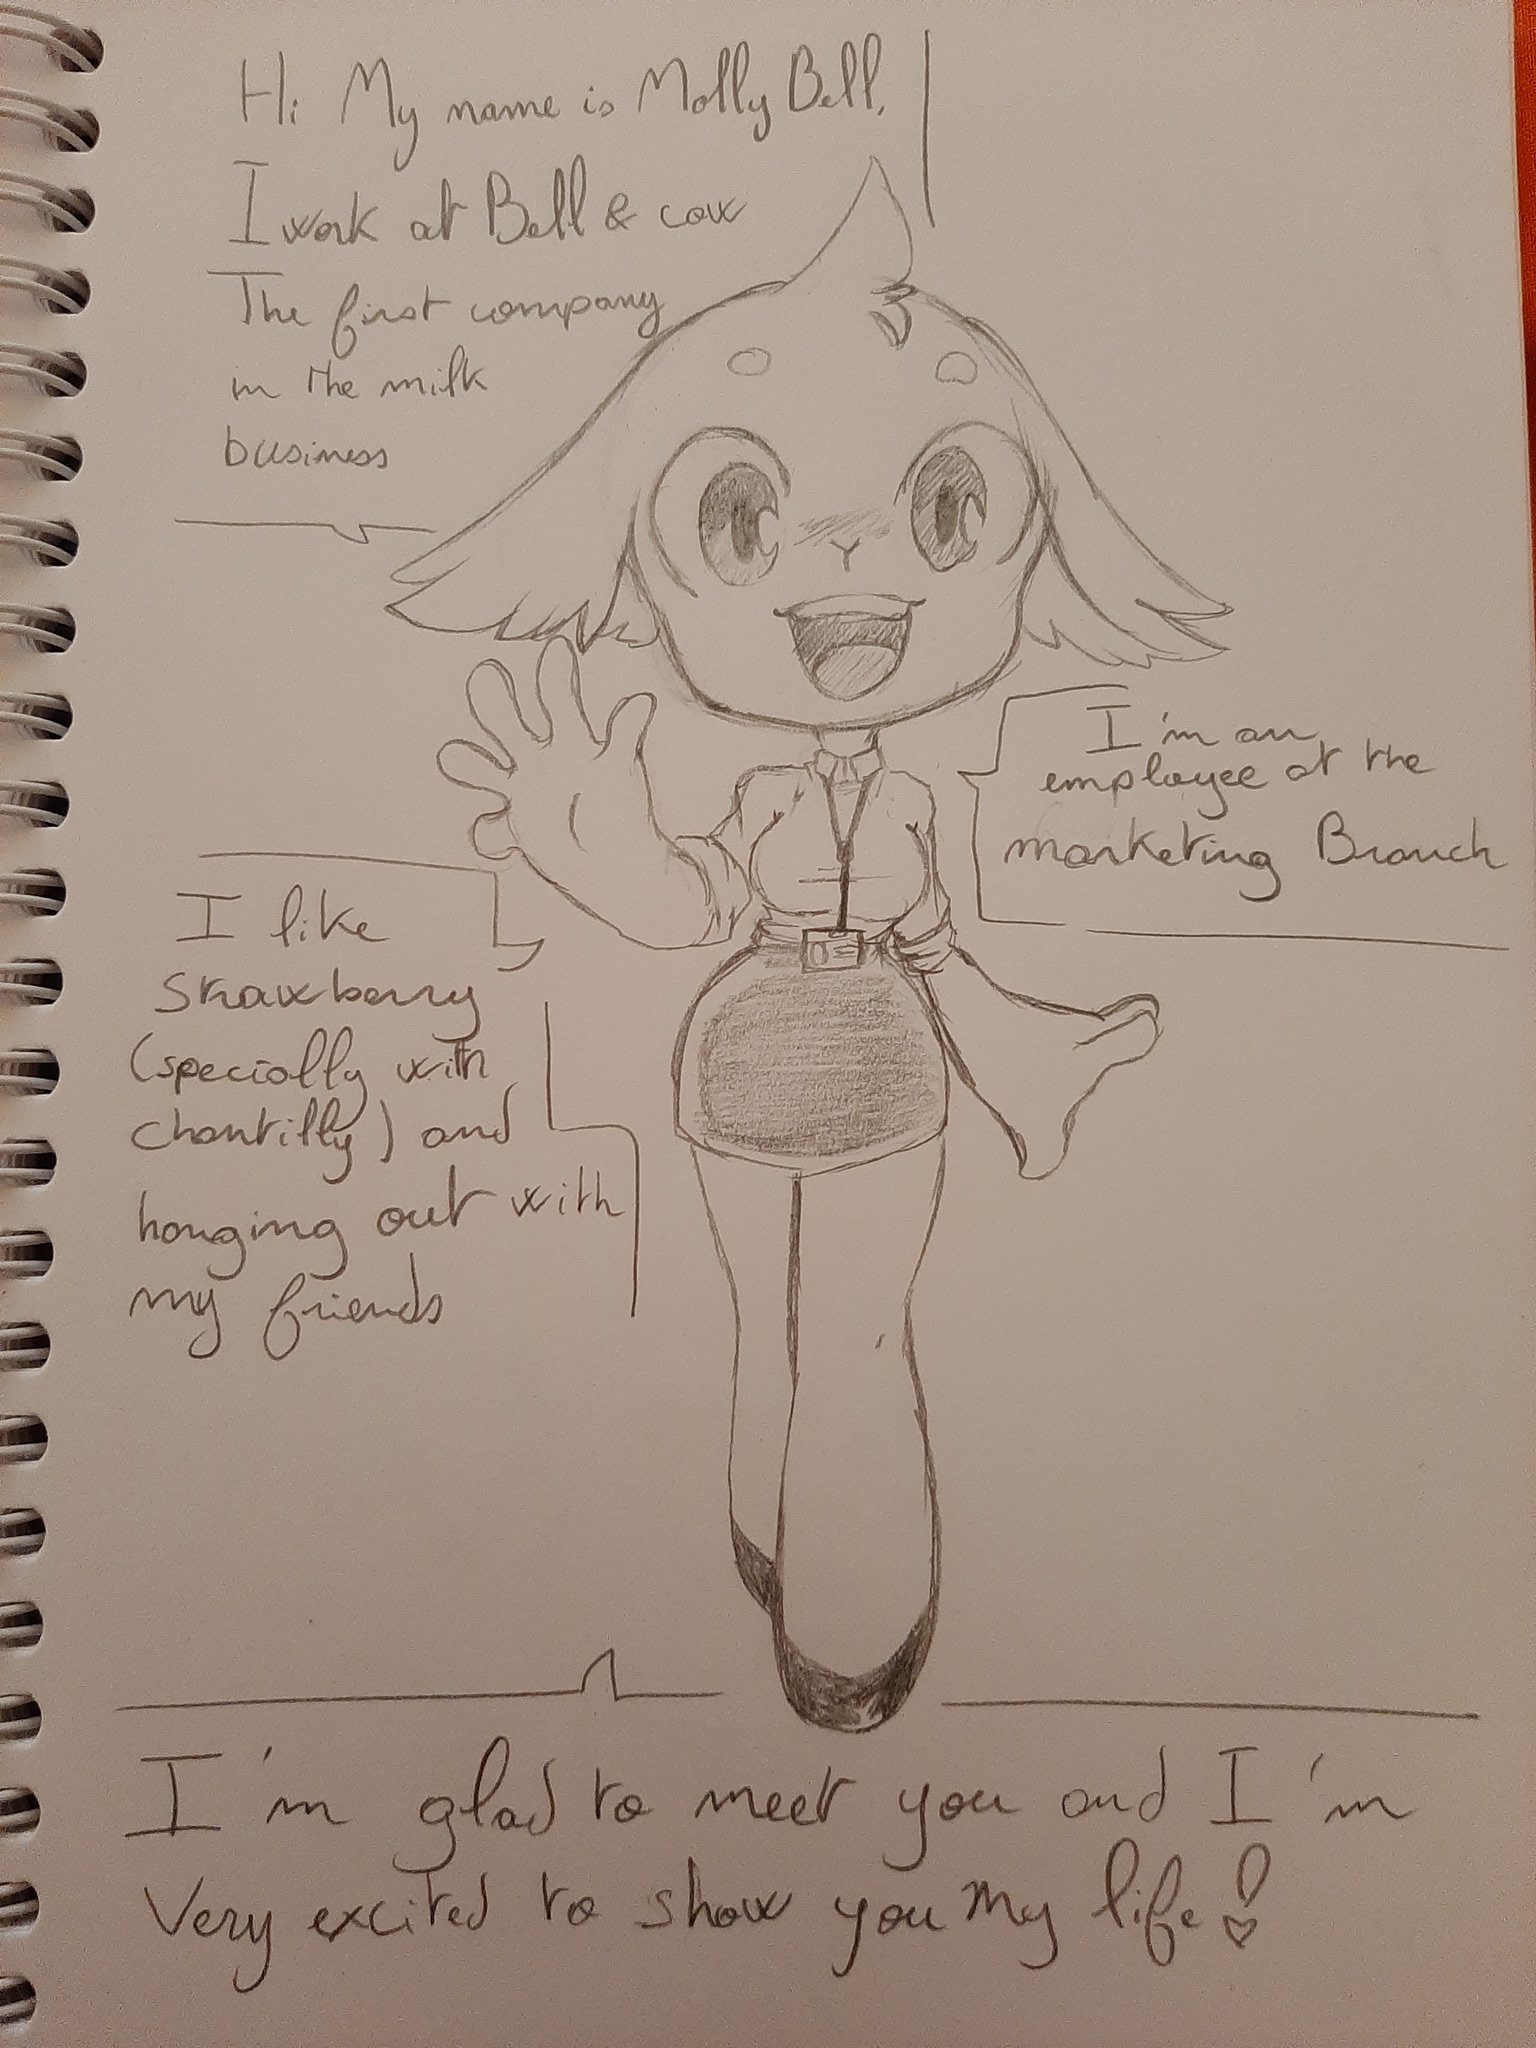 Hi My name is Molly Bell.
I work at Bell & cow
The first company
in the milk
business
I'm an
employee at the
marketing Branch
I like
strawberry
(specially with
chantilly) and
hanging out with
my friends
I'm glad to meet you and I'm
Very excited to show you My life!